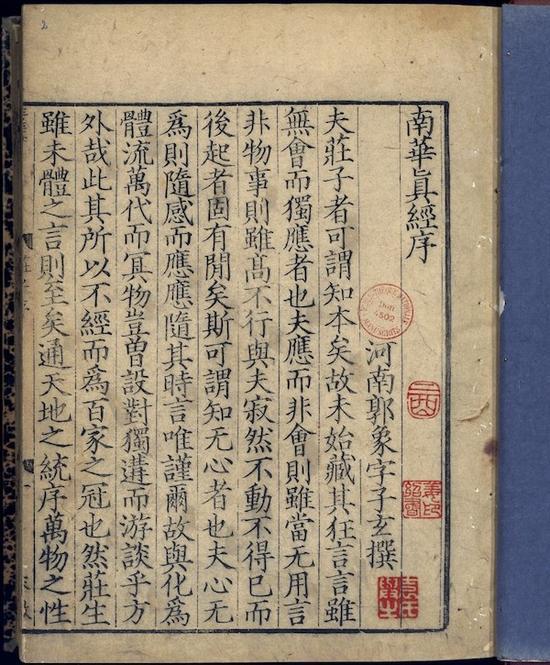 南華真經序
河南郭象字子玄撰
夫莊子者可謂知本矣故未始藏其狂言言雖
無會而獨應者也夫應而非會則雖當无用言
非物事則雖髙不行與夫寂然不動不得已而
後起者固有閒矣斯可謂知无心者也夫心无
為則隨感而應應隨其時言唯謹爾故與化為
體流萬代而冥物豈曽設對獨遘而游談乎方
外哉此其所以不經而為百家之冠也然莊生
雖未體之言則至矣通天地之統序萬物之性